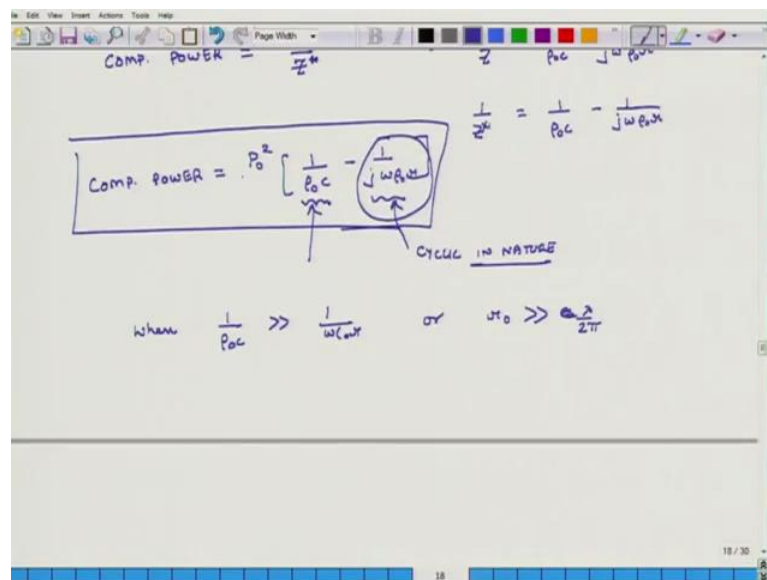 File Edit View Insert Actions Tools Help
Page Width
COMP. POWER = 1/Z*
1/Z* = 1/ρ₀c - 1/jωρ₀r
COMP. POWER = P₀² [ 1/ρ₀c - 1/jωρ₀r ]
CYCLIC IN NATURE
when 1/ρ₀c >> 1/ωρ₀r or r₀ >> λ/2π
18 / 30
18